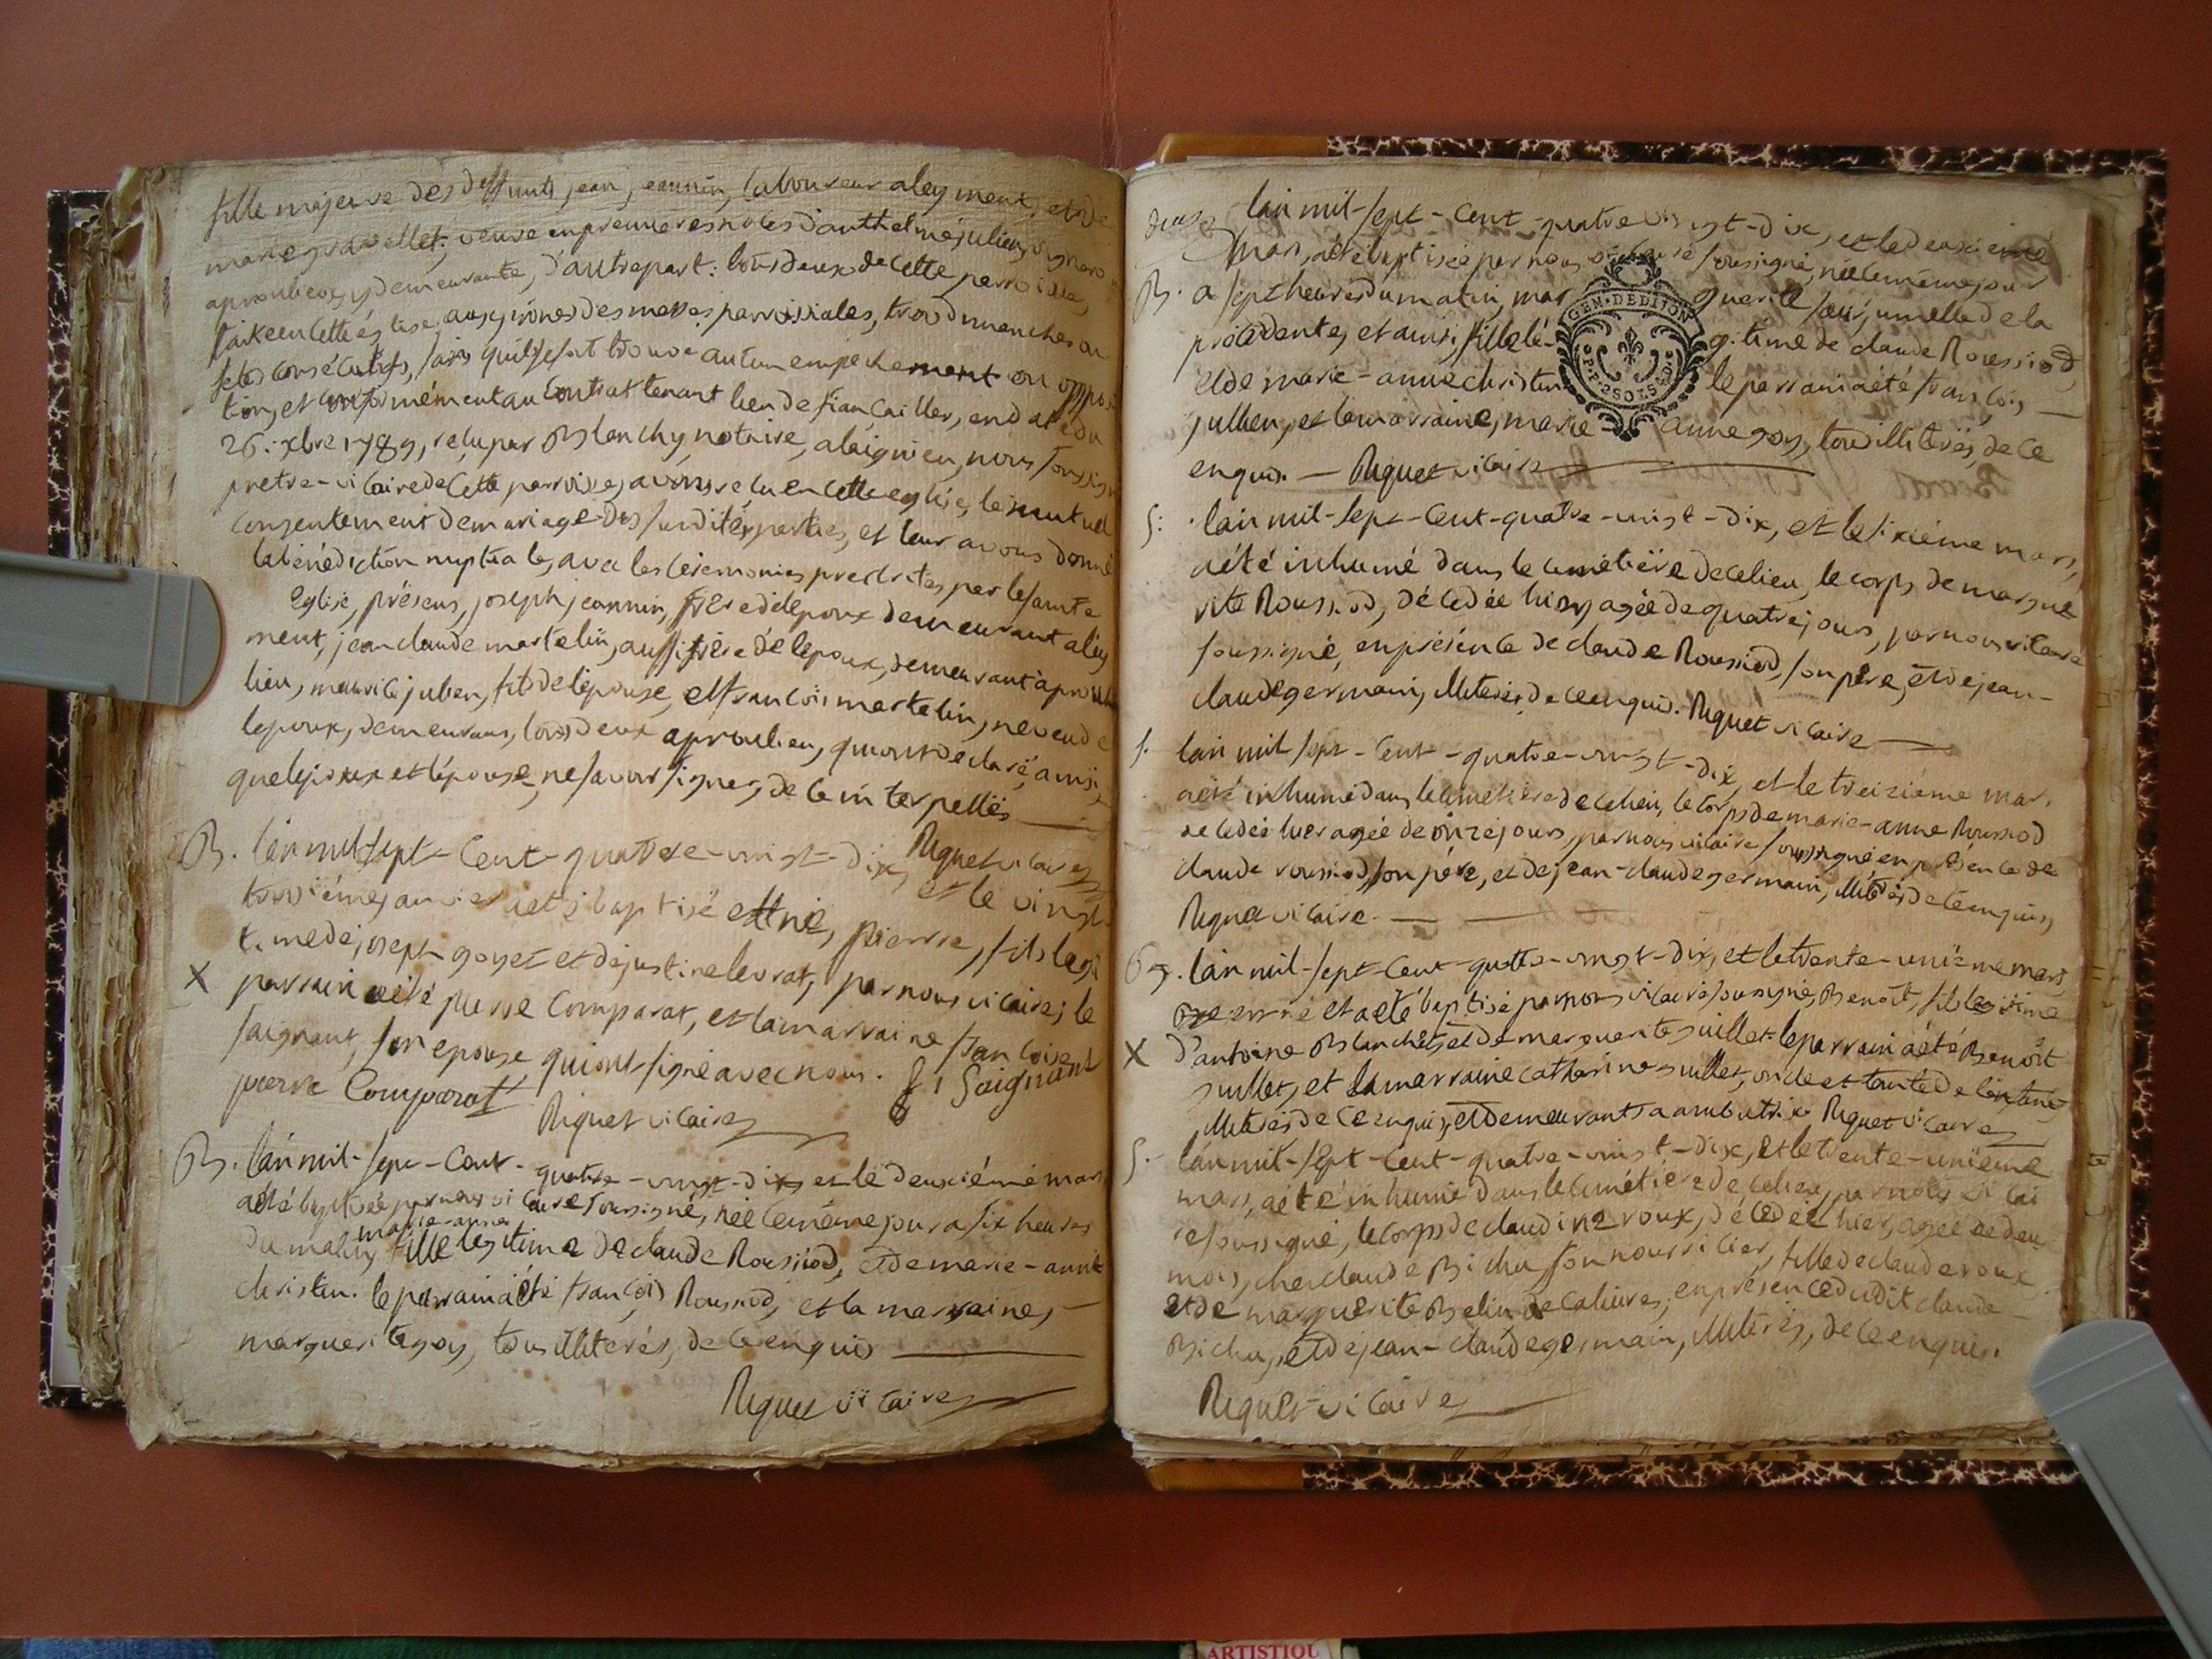 fille majeure des deffunts jean jeannin, laboureur aleyment, et de
marie gravellet; veuve en premieres noces d'anthelme julien, vigneron
a proulieu, y demeurante, d'autre part: tous deux de cette parroisse,
faite en cette église, aux prônes des messes parroissiales, trois dimenches ou
fetes consécutifs, sans qu'il se soit trouvé aucun empechement ou opposi
tion, et conformément au contrat tenant lieu de fiancailles, en date du
26: xbre 1789, reçu par Blanchy notaire, a laignieu, nous soussigné
pretre-vicaire de cette parroisse, avons reçu en cette eglise, le mutuel
consentement de mariage des susdites parties, et leur avons donné
la bénédiction nuptiale, avec les cérémonies prescrites par la sainte
Eglise, présens, joseph jeannin, frere de lepoux demeurant aley
ment, jean claude martelin, aussi frère de lepoux, demeurant a prou
lieu, maurice julien, fils de lépouse, et francois martelin, neveu de
lepoux, demeurans, tous deux a proulieu, qui ont declaré, ainsi
que lepoux et lépouse, ne savoir signer, de ce interpellés
Riquet vicaire
B. lan mil sept-cent-quatre-vingt-dix, et le vingt
troisième janvier a eté baptisé et né, pierre, fils legi
time de joseph goyet et de justine levrat, par nous vicaire; le
X parrain a eté pierre Comparat, et la marraine francoise
saignant, son epouse, qui ont signé avec nous. f. Saignant
pierre Comparat Riquet vicaire
B. lan mil-sept-cent-quatre-vingt-dix, et le deuxiéme mars
a été baptisée par nous vicaire soussigné, née le même jour a six heures
marie-anne
du matin, fille legitime de claude Roussiod, et de marie-anne
christin. le parrain a été francois Roussiod, et la marraine,
marguerite goy, tous illiterés, de ce enquis
Riquet vicaire
lan mil-sept-cent-quatre vingt-dix, et le deuxiéme
mars, a été baptisée par nous vicaire soussigné, née le même jour
B. a sept heures du matin, marguerite soeur jumelle de la
GEN. DE DIJON
précedente, et aussi, fille légitime de claude Roussiod,
P.P. 2 SOLS 8 D.
et de marie-anne christin le parrain a été francois
jullien, et la marraine, marie-anne goy, tous illiterés, de ce
enquis. Riquet vicaire
S: lan mil-sept-cent-quatre-vingt-dix, et le sixiéme mars,
a été inhumé dans le cimetière de ce lieu, le corps de margue
rite Roussiod, décedée hier agée de quatre jours, par nous vicaire
soussigné, en présence de claude Roussiod, son père, et de jean-
claude germain, illiterés, de ce enquis. Riquet vicaire
S. lan mil sept-cent-quatre-vingt-dix, et le treiziéme mars
a été inhumé dans le cimetière de ce lieu, le corps de marie-anne Roussiod
decedée hier agée de onze jours, par nous vicaire soussigné en présence de
claude roussiod, son père, et de jean-claude germain, illiterés de ce enquis,
Riquet vicaire.
B. lan mil-sept-cent-quatre-vingt-dix, et le trente-uniéme mars,
est né et a été baptisé par nous vicaire soussigné, Benoît, fils legitime
X d'antoine Blanchet, et de marguerite guillet. le parrain a été Benoît
guillet, et la marraine catherine guillet, oncle et tante de l'enfant,
illiterés de ce enquis, et demeurants a ambutrix Riquet vicaire
S. lan mil-sept-cent-quatre-vingt-dix, et le trente-uniéme
mars, a été inhumé dans le cimétière de ce lieu, par nous vicai
re soussigné, le corps de claudine roux, décedée hier, agée de deux
mois, chez claude Bichu son nourricier, fille de claude roux
et de marguerite Belin de Caluires, en présence dudit claude
Bichu, et de jean-claude germain, illiterés, de ce enquis.
Riquet vicaire
ARTISTIQU